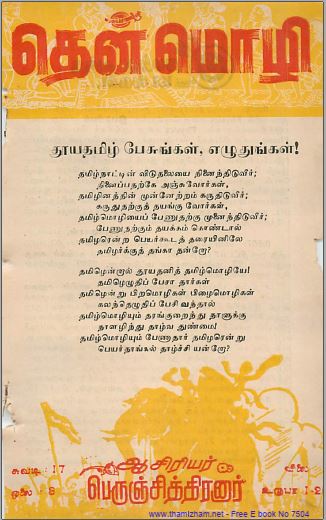 தென்மொழி
தூயதமிழ் பேசுங்கள், எழுதுங்கள்!
தமிழ்நாட்டின் விடுதலையை நினைத்திடுவீர்;
நினைப்பதற்கே அஞ்சுவோர்கள்,
தமிழினத்தின் முன்னேற்றம் கருதிடுவீர்;
கருதுதற்குத் தயங்குவோர்கள்,
தமிழ்மொழியைப் பேணுதற்கு முனைந்திடுவீர்;
பேணுதற்கும் தயக்கம் கொண்டால்
தமிழரென்ற பெயர்கூடத் தரையினிலே
தமிழர்க்குத் தங்கா தன்றோ?
தமிழென்றால் தூயதனித் தமிழ்மொழியே!
தமிழெழுதிப் பேசா தார்கள்
தமிழென்று பிறமொழிகள் பிழைமொழிகள்
கலந்தெழுதிப் பேசி வந்தால்
தமிழ்மொழியும் தரங்குறைந்து தாளுக்கு
தாளழிந்து தாழ்வ துண்மை!
தமிழ்மொழியும் பேணாதார் தமிழரென்று
பெயர்தாங்கல் தாழ்ச்சி யன்றோ?
சுவடி : 17
ஓலை : 8
ஆசிரியர்
பெருஞ்சித்திரனார்
விலை
உரூபா 1-2
www.thamizham.net - Free E book No 7504